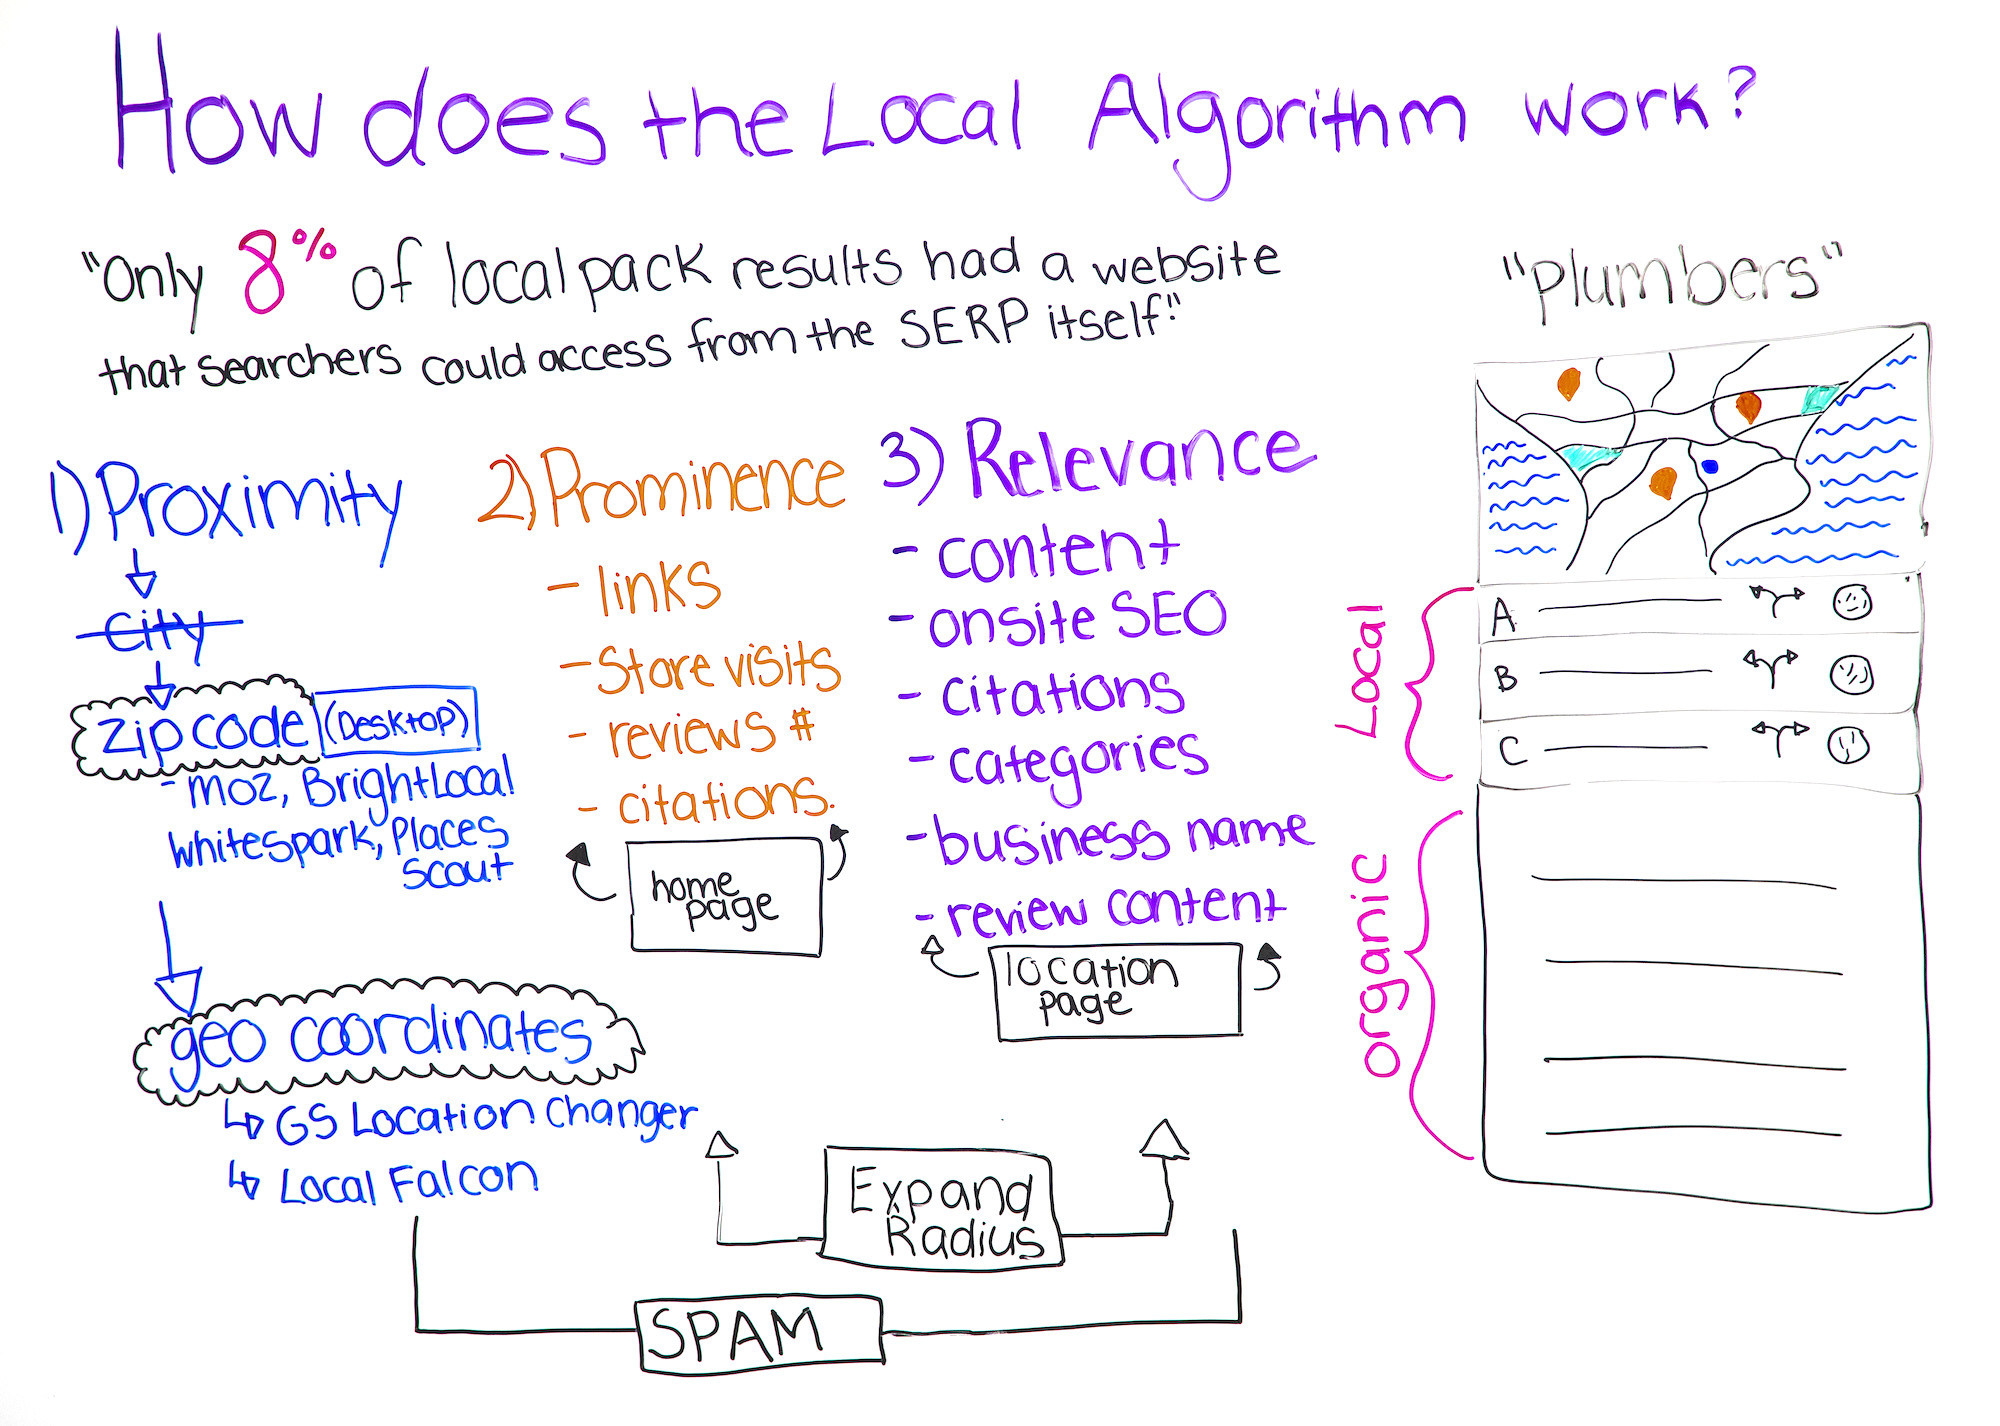 How does the Local Algorithm work?
"Only 8% of local pack results had a website
that searchers could access from the SERP itself."
1) Proximity
city
zip code (Desktop)
- moz, BrightLocal
whitespark, Places
scout
geo coordinates
GS Location Changer
Local Falcon
2) Prominence
- links
- Store visits
- reviews #
- citations.
home
page
3) Relevance
- content
- onsite SEO
- citations
- categories
- business name
- review content
location
page
Expand
Radius
SPAM
"Plumbers"
Local
A
B
C
organic